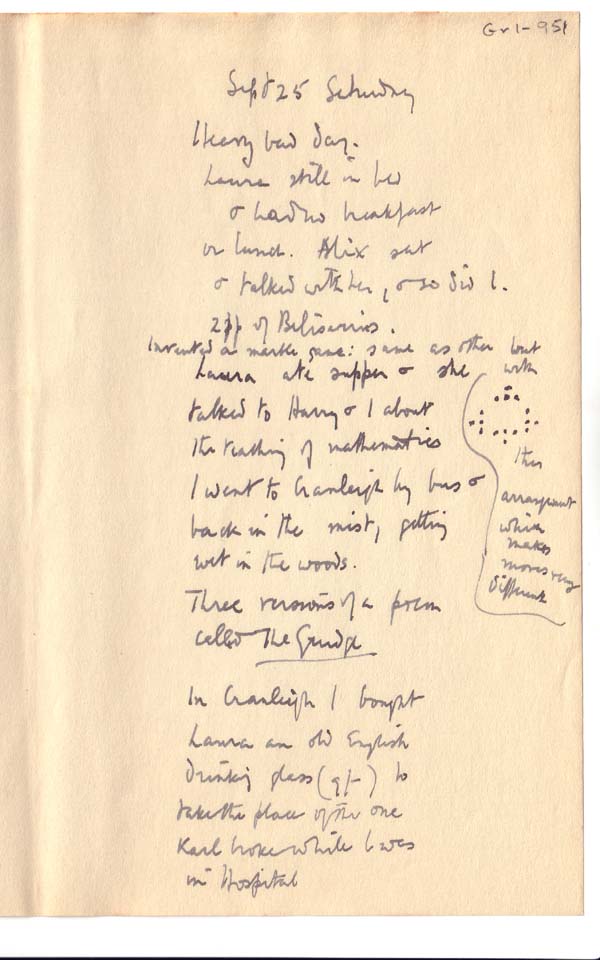 Gr1-951
Sept 25 Saturday
Heavy bad day.
Laura still in bed
& had no breakfast
or lunch. Alix sat
& talked with her, & so did I.
2pp of Belisarius.
Invented a marble game: same as other but
with
this
arrangement
which
makes
moves very
different
Laura ate supper & she
talked to Harry & I about
the teaching of mathematics
I went to Cranleigh by bus &
back in the mist, getting
wet in the woods.
Three versions of a poem
called The Grudge
In Cranleigh I bought
Laura an old English
drinking glass (9/-) to
take the place of the one
Karl broke while I was
in Hospital